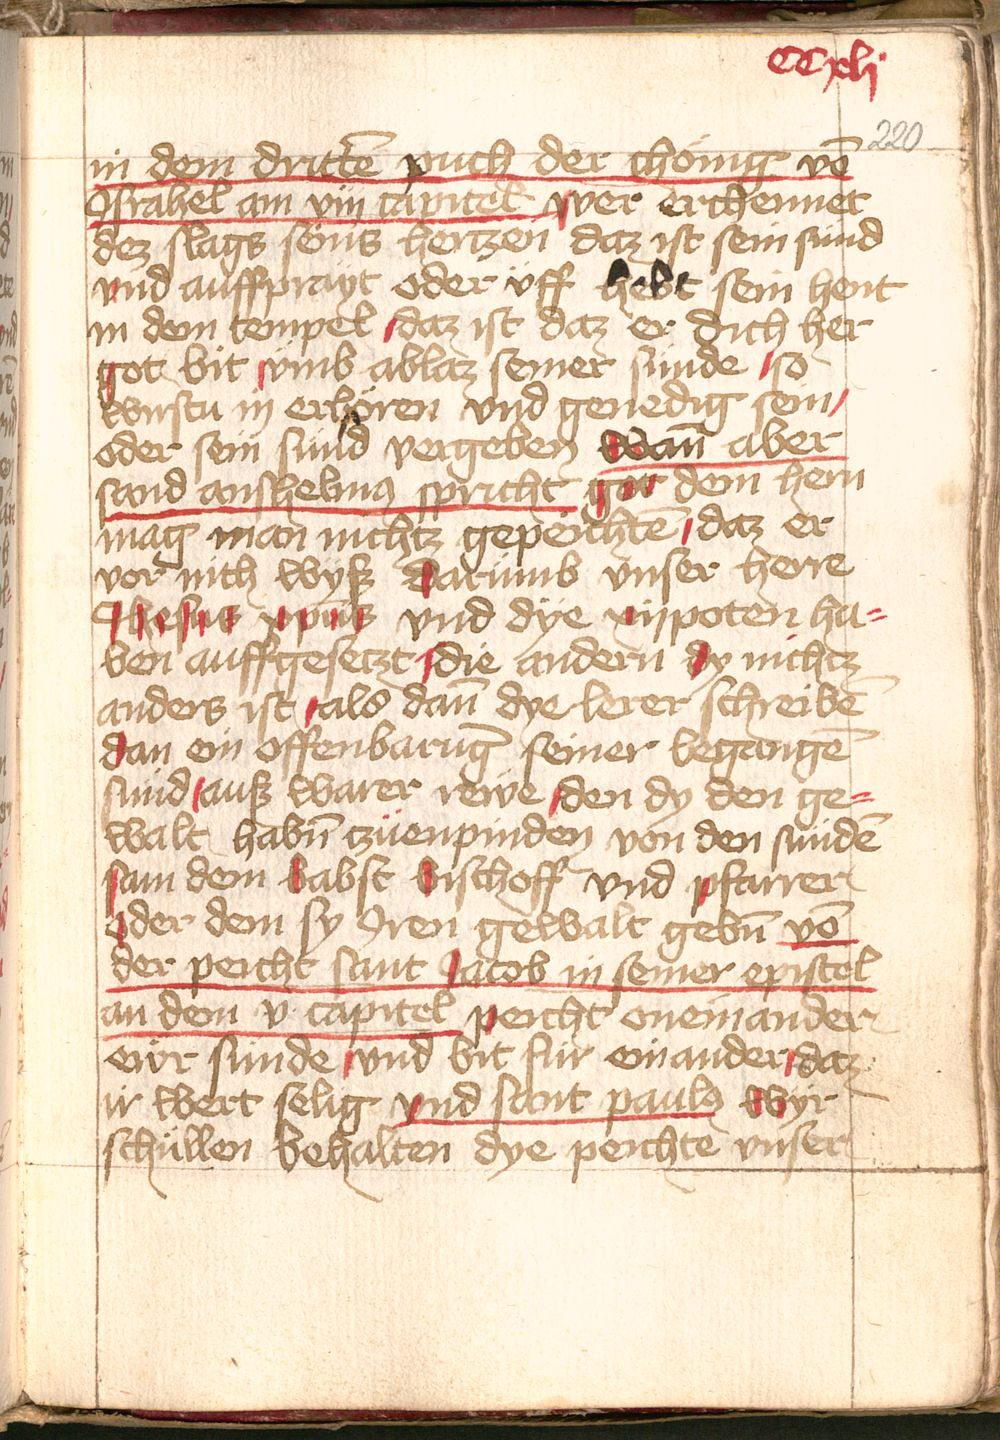 CCxlj
220
in dem dritte̅ puch der chönig vo̅
Israhel am viij capitel wer erchennet
dez slags seins hertzen daz ist sein sünd
vnd auffprayt oder üff hebt sein hent
in dem tempel daz ist daz er dich her
got bit vmb ablaz seiner sünde so
wirstu in erhören vnd genedig sein
oder sein sünd vergeben Wan̅ aber
sand anshelmus spricht got dem hern
mag man nichtz gepeichte̅ daz er
vor nich wyß darumb vnser herre
Jhesus xpūs vnd dÿe xijpoten ha-
ben auffgesetzt die andern dy nichtz
anders ist als dan̅ dye lerer schreibe̅
dan ein offenbarug̅ seiner begange̅
sünd auß warer reẅe den dy den ge-
walt habn̅ zzuenpinden von den sünde̅
sam dem babst bischoff vnd pfarrer
oder dem sy Iren gewalt gebn̅ vo̅
der peicht sant Jacob in seiner epistel
an dem v capitel peicht oneinander
eẅr sünde vnd bit für einander daz
ir wert selig vnd sant pauls Wyr
schüllen behalten dye peichte vnser